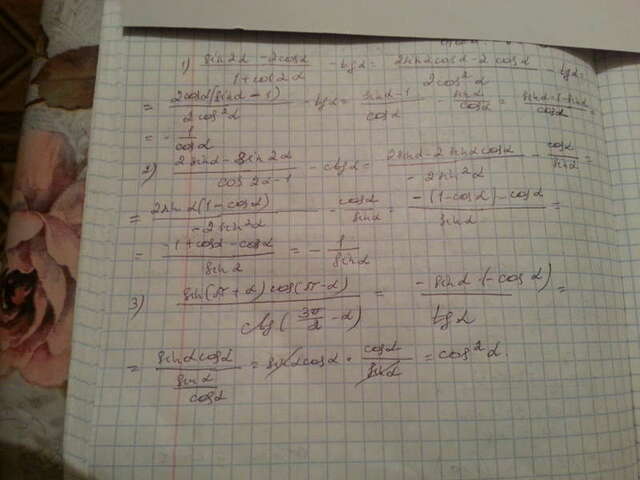 1) (sin2α - 2cosα)/(1+cos2α) - tgα = (2sinαcosα - 2cosα)/(2cos²α) - tgα =
= (2cosα(sinα - 1))/(2cos²α) - tgα = (sinα-1)/cosα - sinα/cosα = (sinα-1-sinα)/cosα =
= - 1/cosα
2) (2sinα - sin2α)/(cos2α-1) - ctgα = (2sinα - 2sinαcosα)/(-2sin²α) - cosα/sinα =
= (2sinα(1-cosα))/(-2sin²α) - cosα/sinα = (-(1-cosα)-cosα)/sinα =
= (-1+cosα-cosα)/sinα = - 1/sinα
3) (sin(π+α)cos(π-α))/(ctg(3π/2 - α)) = (-sinα·(-cosα))/tgα =
= (sinαcosα)/(sinα/cosα) = sinαcosα · cosα/sinα = cos²α.